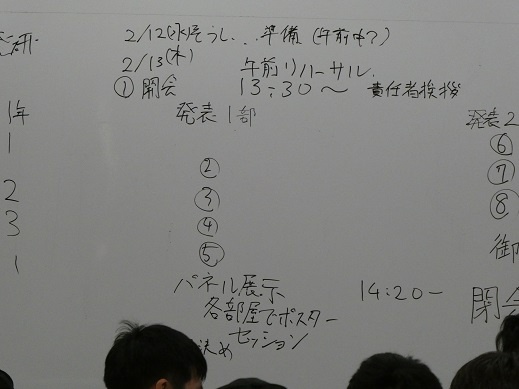 発研
2/12(水)そうじ、準備(午前中?)
2/13(木) 午前リハーサル
① 開会 13:30〜 責任者挨拶
1年 発表1部 発表2
1 ⑥
② ⑦
2 ③ ⑧
3 ④
1 ⑤ 御
パネル展示 14:20ー 閉会
各部屋でポスター
セッション
決め